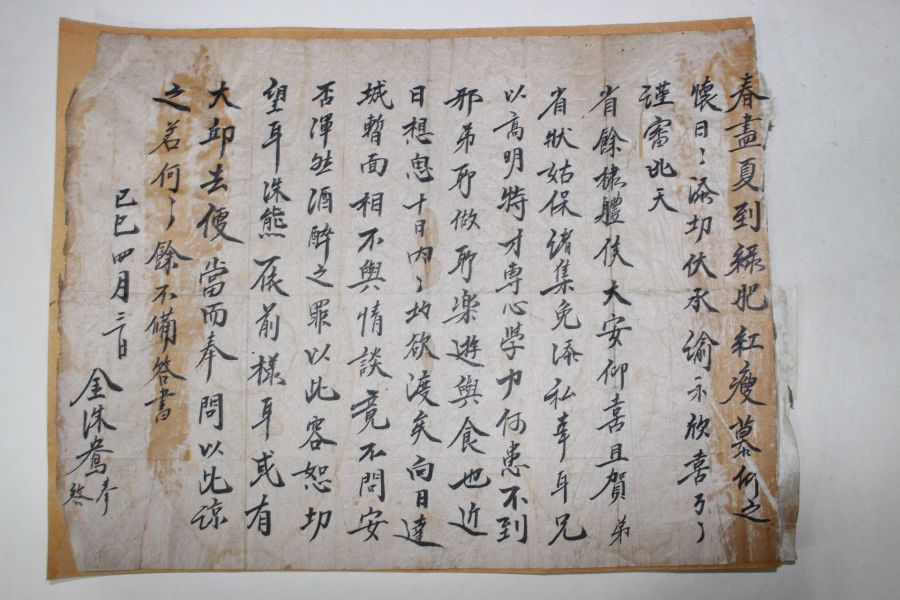 春盡夏到綠肥紅瘦慕仰之
懷日〻添切伏承諭示欣喜万〻
謹審此天
省餘棣體候大安仰喜且賀弟
省狀姑保緒集免添私幸耳兄
以高明特才專心學力何患不到
邪弟所做所樂遊與食也近
日想思十日內〻圽欲渡矣向日達
城暫面相不與情談竟不問安
否渾然酒醉之罪以此容恕切
望耳洙熊依前樣耳或有
大邱去便當而奉問以此諒
之若何〻餘不備答書
己巳四月三日
金洙鴦